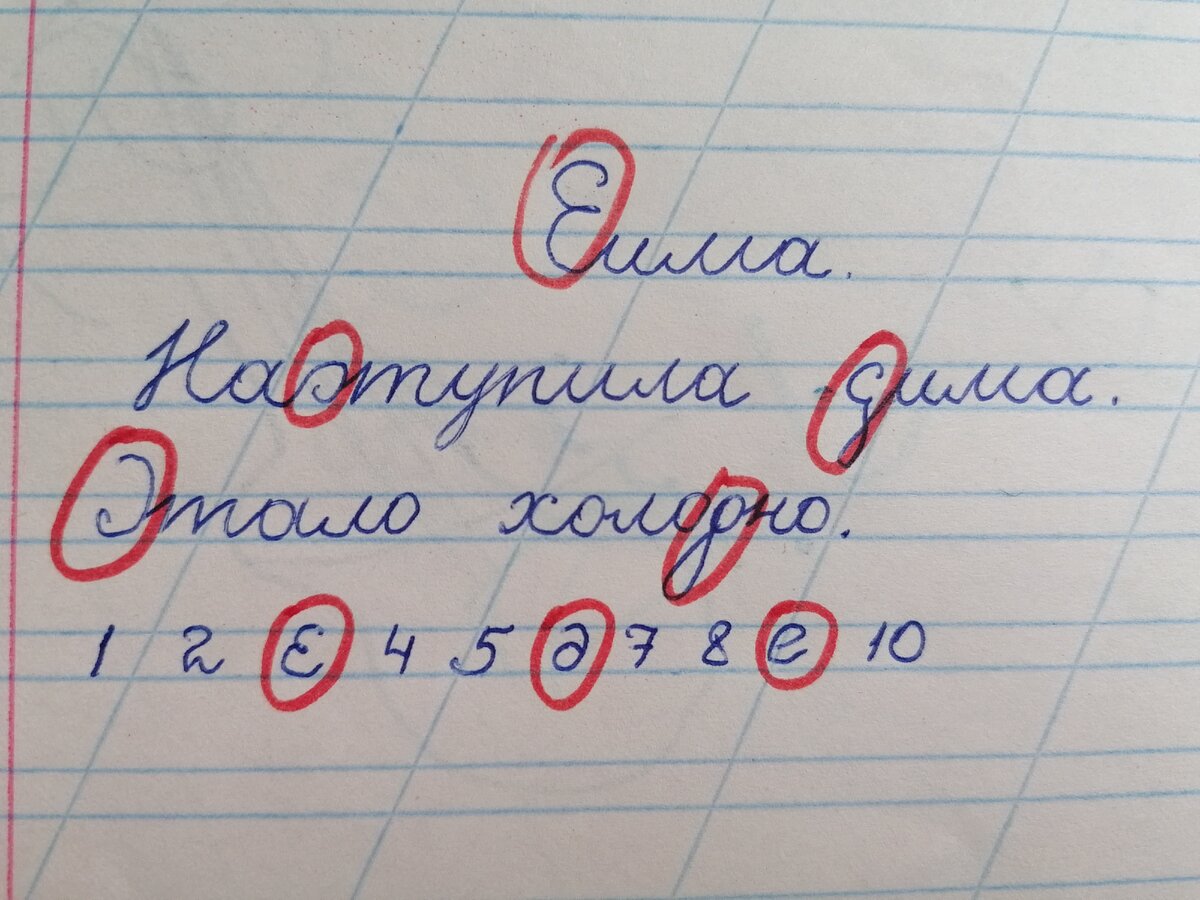 Еима.
Наэтупила дима.
Этало холодно.
1 2 Ɛ 4 5 ∂ 7 8 е 10